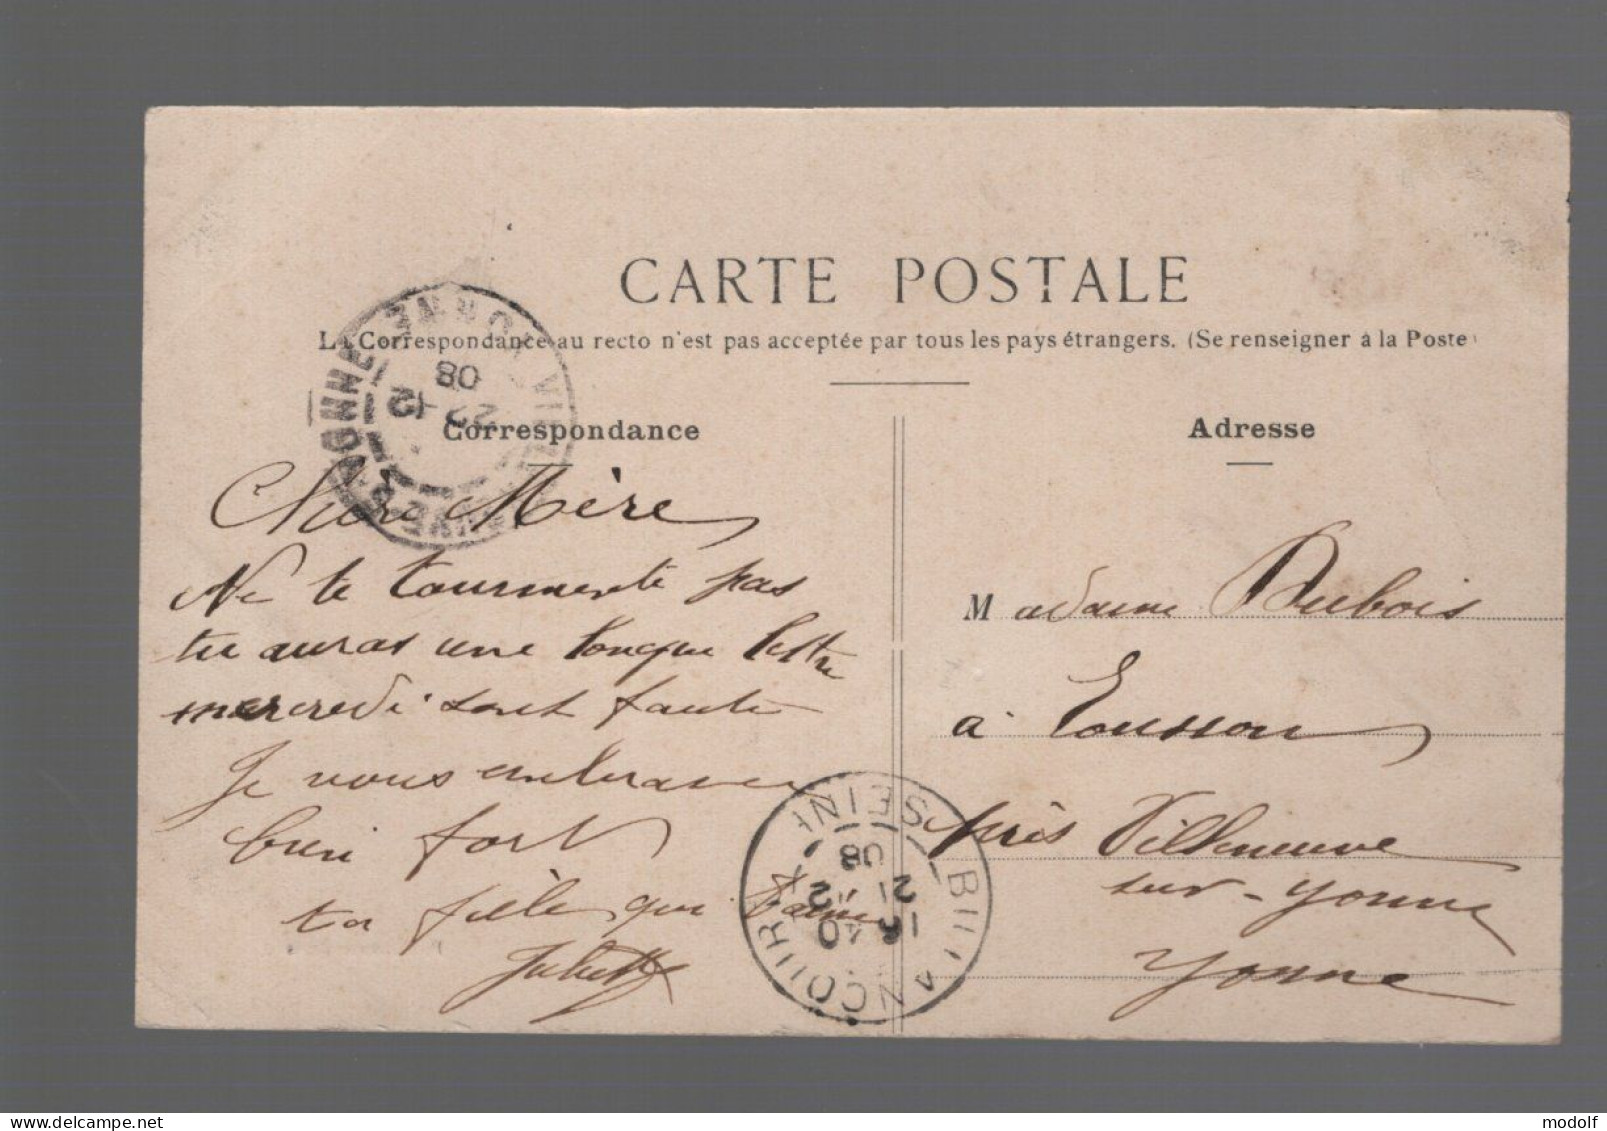 CARTE POSTALE
La Correspondance au recto n'est pas acceptée par tous les pays étrangers. (Se renseigner à la Poste
Correspondance
Chère Mère
Ne te tourmente pas
tu auras une longue lettre
mercredi sans faute
Je vous embrasse
bien fort
ta fille qui t'aime
Juliette
Adresse
Madame Dubois
à Tousson
près Villeneuve
sur-Yonne
Yonne
VILLENEUVE-S-YONNE YONNE
23 -12
08
BILLANCOURT SEINE
16 40
21 12
08
modolf